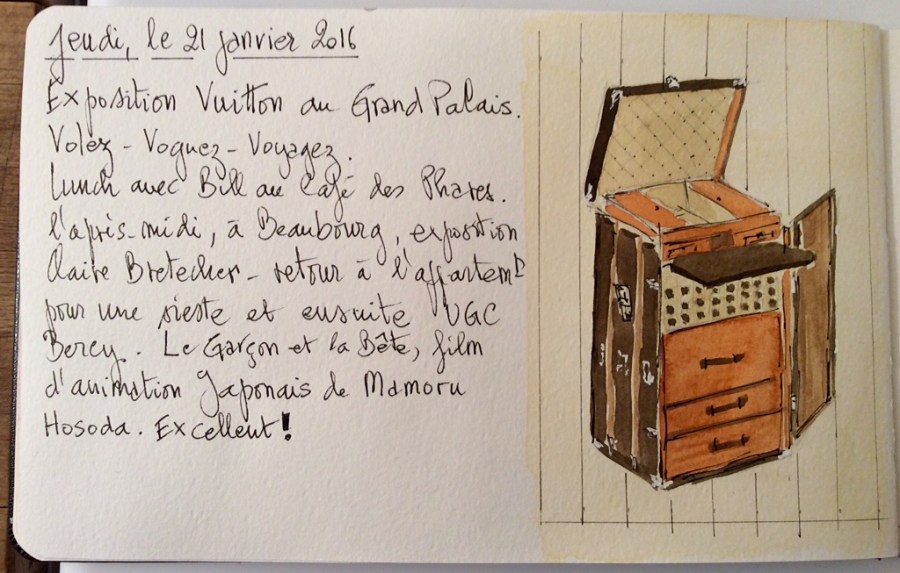 Jeudi, le 21 janvier 2016
Exposition Vuitton au Grand Palais.
Volez - Voguez - Voyagez.
Lunch avec Bill au Café des Phares.
l'après-midi, à Beaubourg, exposition
Claire Bretecher - retour à l'appartemt
pour une sieste et ensuite UGC
Bercy. Le Garçon et la Bête, film
d'animation Japonais de Mamoru
Hosoda. Excellent!